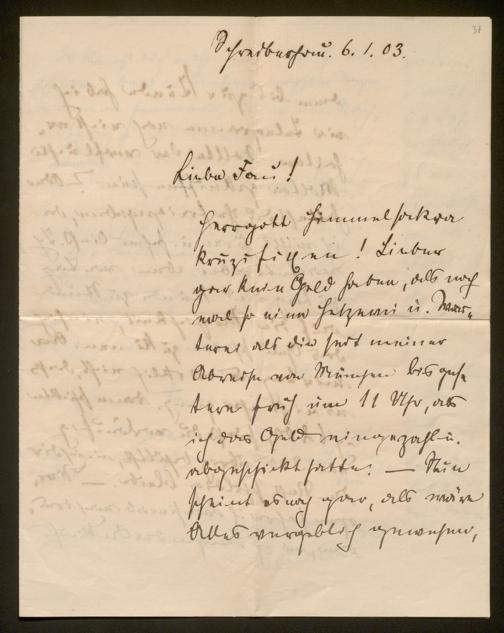 37
Schreiberhau. 6.1.03.
Liebe Frau!
Herrgott Himmelsakra
Kruzifixen! Lieber
gar kein Geld haben, als noch
mal so eine Hetzerei u. War-
terei als die seit meiner
Abreise von München bis ges-
tern früh um 11 Uhr, als
ich das Geld eingezahlt u.
abgeschickt hatte. — Nun
scheint es noch gar, als wäre
Alles vergeblich gewesen,